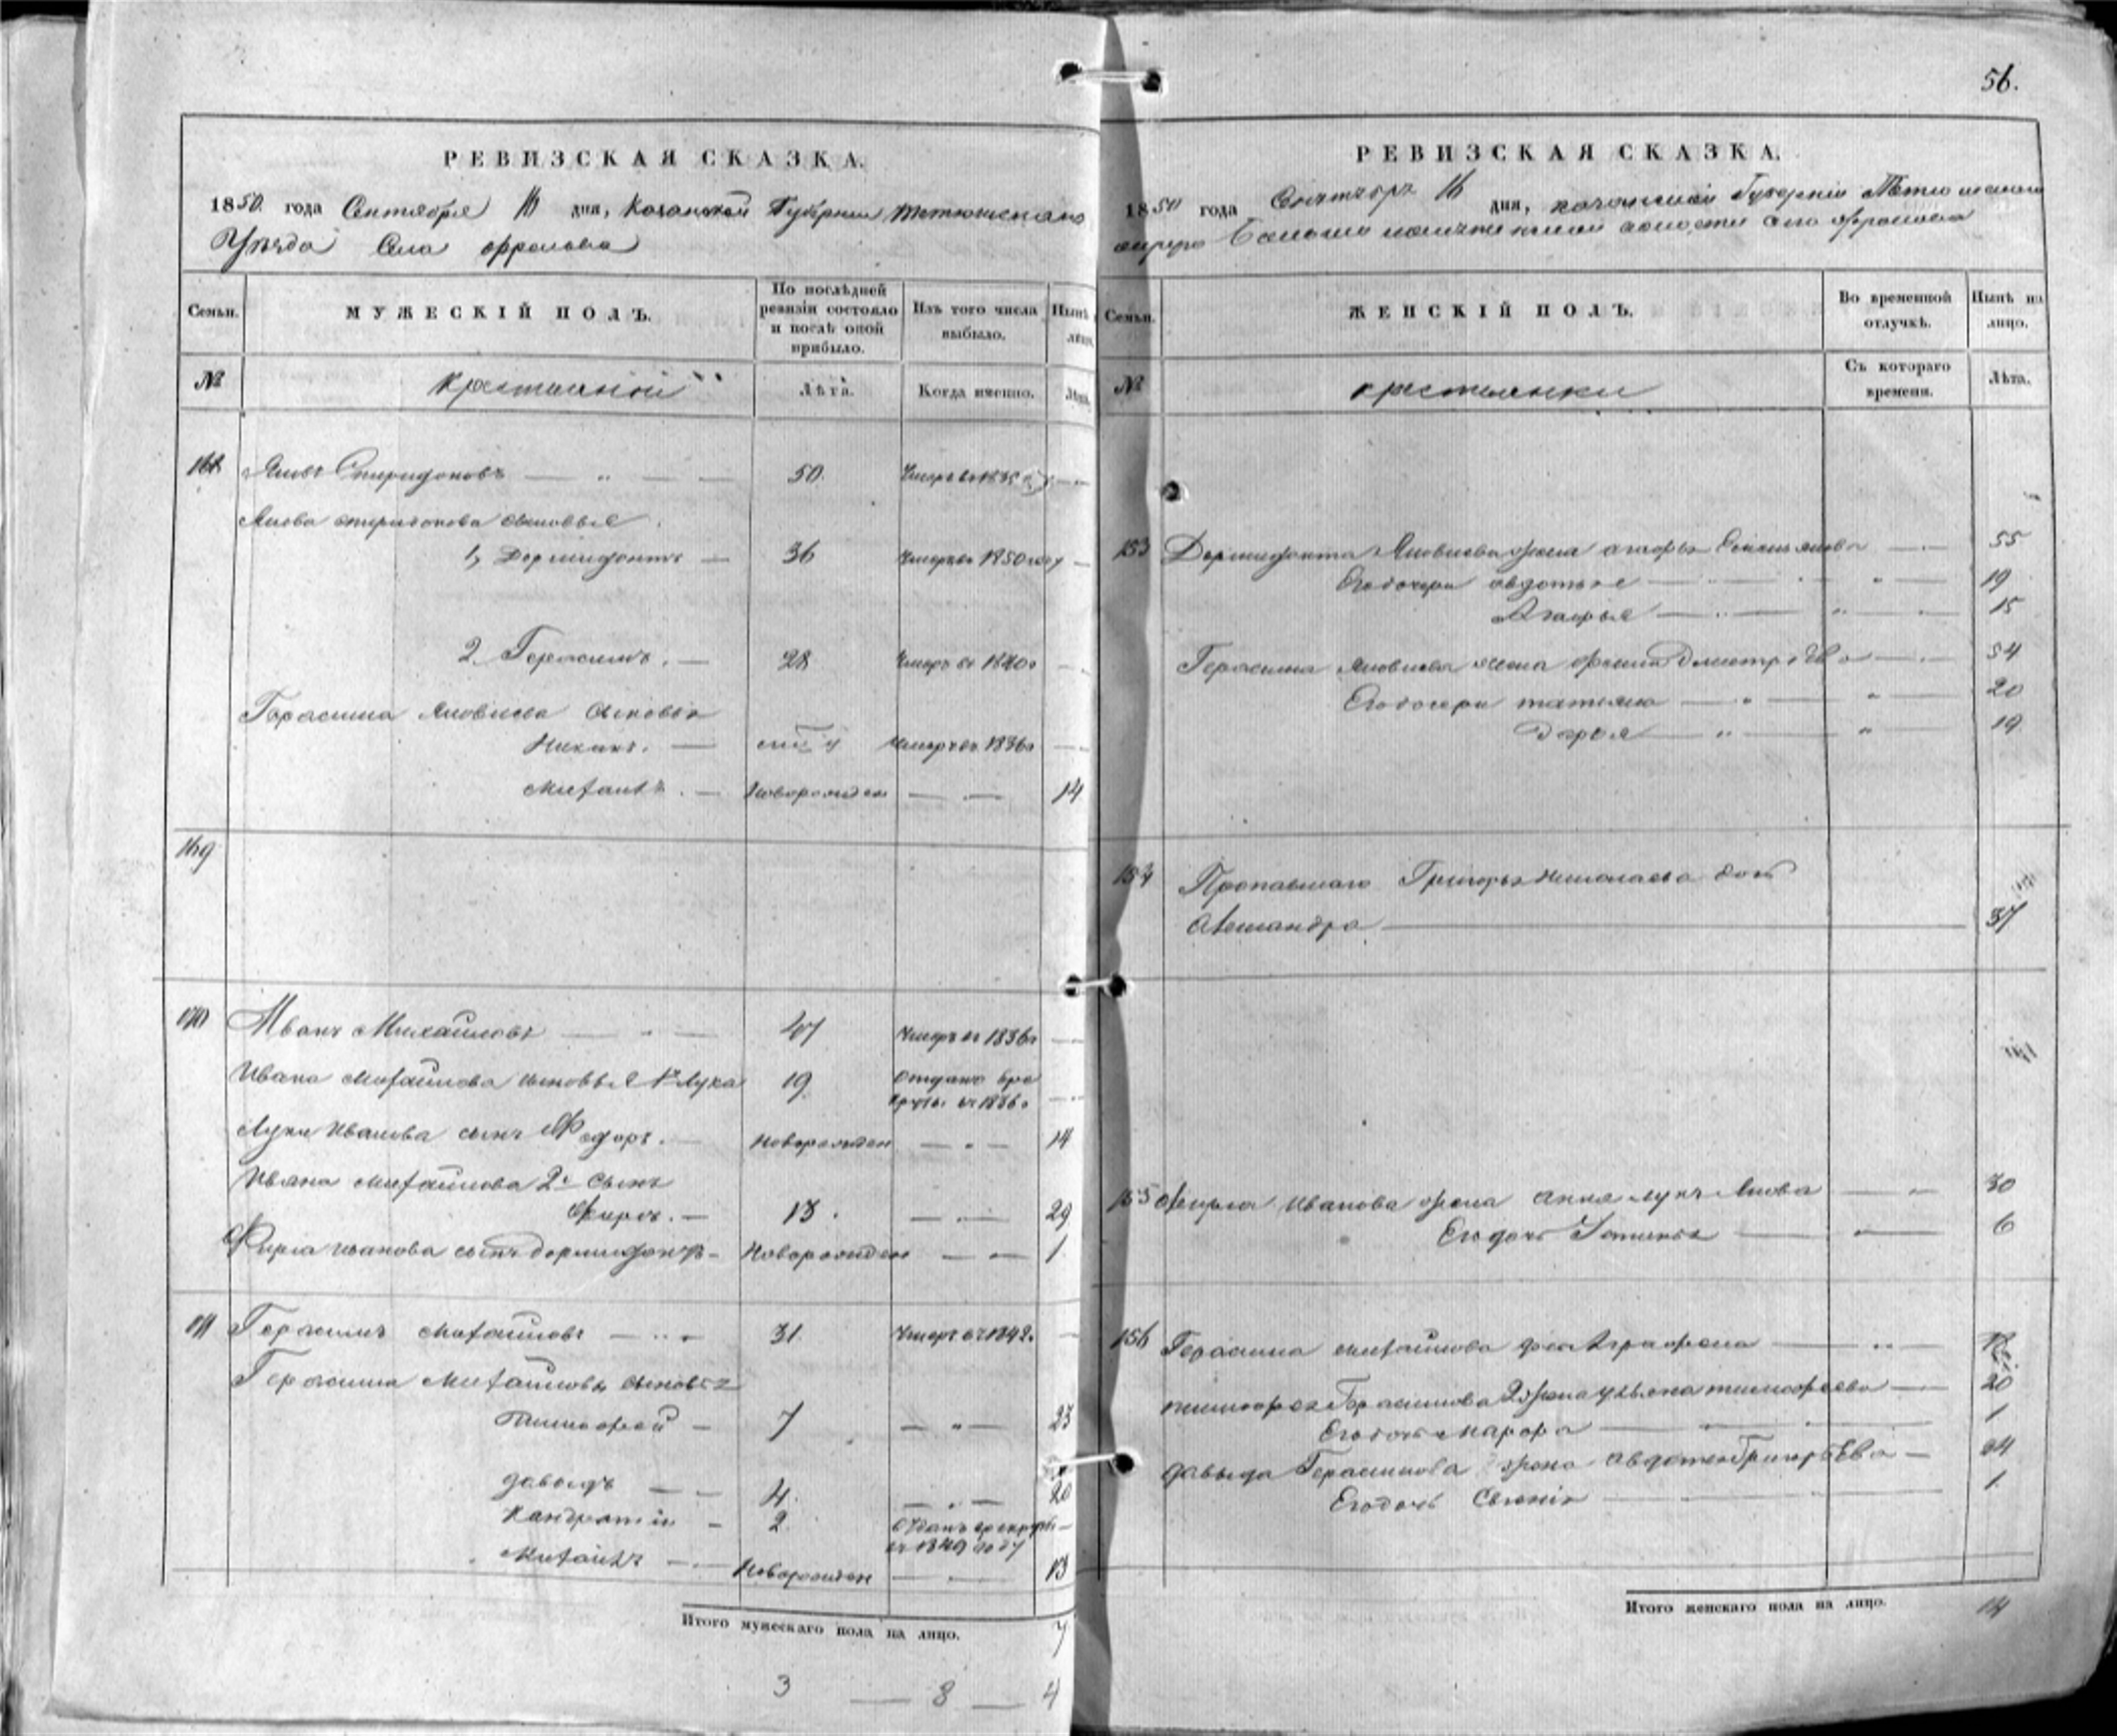 56.
РЕВИЗСКАЯ СКАЗКА.
1850 года Сентября 16 дня, Казанской Губернии Тетюшскаго
Уѣзда Села Фролова
Семьи.
МУЖЕСКІЙ ПОЛЪ.
По послѣдней ревизіи состояло и послѣ оной прибыло.
Изъ того числа выбыло.
Нынѣ
№
Лѣта.
Когда именно.
Лѣта.
168 Яковъ Спиридоновъ 50 Умеръ въ 1835
Якова Спиридонова сыновья
1, Дормидонтъ 36 Умеръ въ 1850 году
2 Герасимъ. 28 Умеръ въ 1840
Герасима Яковлева сыновья
умеръ въ 1836
Михайла. Новорожден 14
169
170 Иванъ Михайловъ 47 Умеръ въ 1836
Ивана Михайлова сыновья 1й Лука 19 Отданъ въ рекруты въ 1836
Луки Иванова сынъ Федоръ. Новорожден 14
Ивана Михайлова 2й сынъ
Фирсъ. 13 29
Фирса Иванова сынъ Дормидонтъ Новорожден 1
171 Герасимъ Михайловъ 31. Умеръ въ 1842.
Герасима Михайлова сыновья
Тимофей 7 23
Давыдъ 4. 20
Кандратій 2 Отданъ в рекруты въ 1849 году
Михайла Новорожден 13
Итого мужескаго пола на лицо. 7
3 — 8 — 4
РЕВИЗСКАЯ СКАЗКА.
1850 года Сентября 16 дня, Казанской Губерніи Тетюшскаго
волости Села Фролова
Семьи.
ЖЕНСКІЙ ПОЛЪ.
Во временной отлучкѣ.
Нынѣ на лицо.
№
крестьянки
Съ котораго времени.
Лѣта.
153 Дормидонта Яковлева жена 55
Его дочери Авдотья 19
Агафья 15
Герасима Яковлева жена Дмитріева 54
Его дочери Татьяна 20
Дарья 19
154 Пропавшаго Григорья Николаева дочь
Александра 37
155 Фирса Иванова жена Анна Лукьянова 30
Его дочь Устинья 6
156 Герасима Михайлова жена Аграфена
Тимофея Герасимова 2 жена Ульяна Тимофеева 20
Его дочь Марфа 1
Давыда Герасимова жена Авдотья Григорьева 24
Его дочь 1.
Итого женскаго пола на лицо. 14